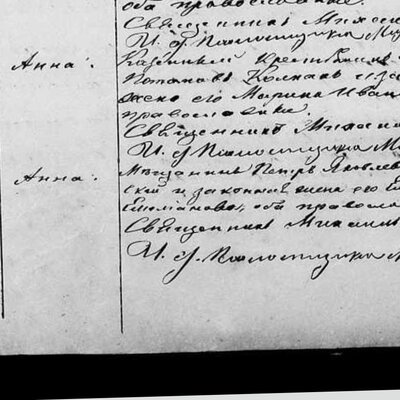 оба православные.
Священникъ Михаилъ
И. д. Псаломщика Ми
Анна.
Казенный крестьянинъ
Потаповъ Колпаковъ и за
жена его Марина Иван
православные.
Священникъ Михаилъ
И. д. Псаломщика М
Анна.
Мѣщанинъ Петръ Яковлев
скій и законная жена его Е
оба православ
Священникъ Михаилъ
И. д. Псаломщика М